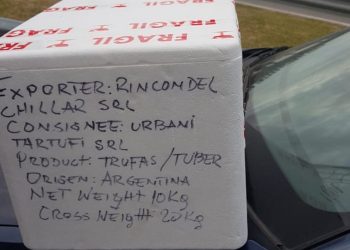 FRAGIL FRAGIL
FRAGIL FRAGIL
EXPORTER: RINCON DEL
CHILLAR SRL
CONSIGNEE: URBANI
TARTUFI SRL
PRODUCT: TRUFAS/TUBER
ORIGEN: ARGENTINA
NET WEIGHT 10Kg
CROSS WEIGHT 20Kg